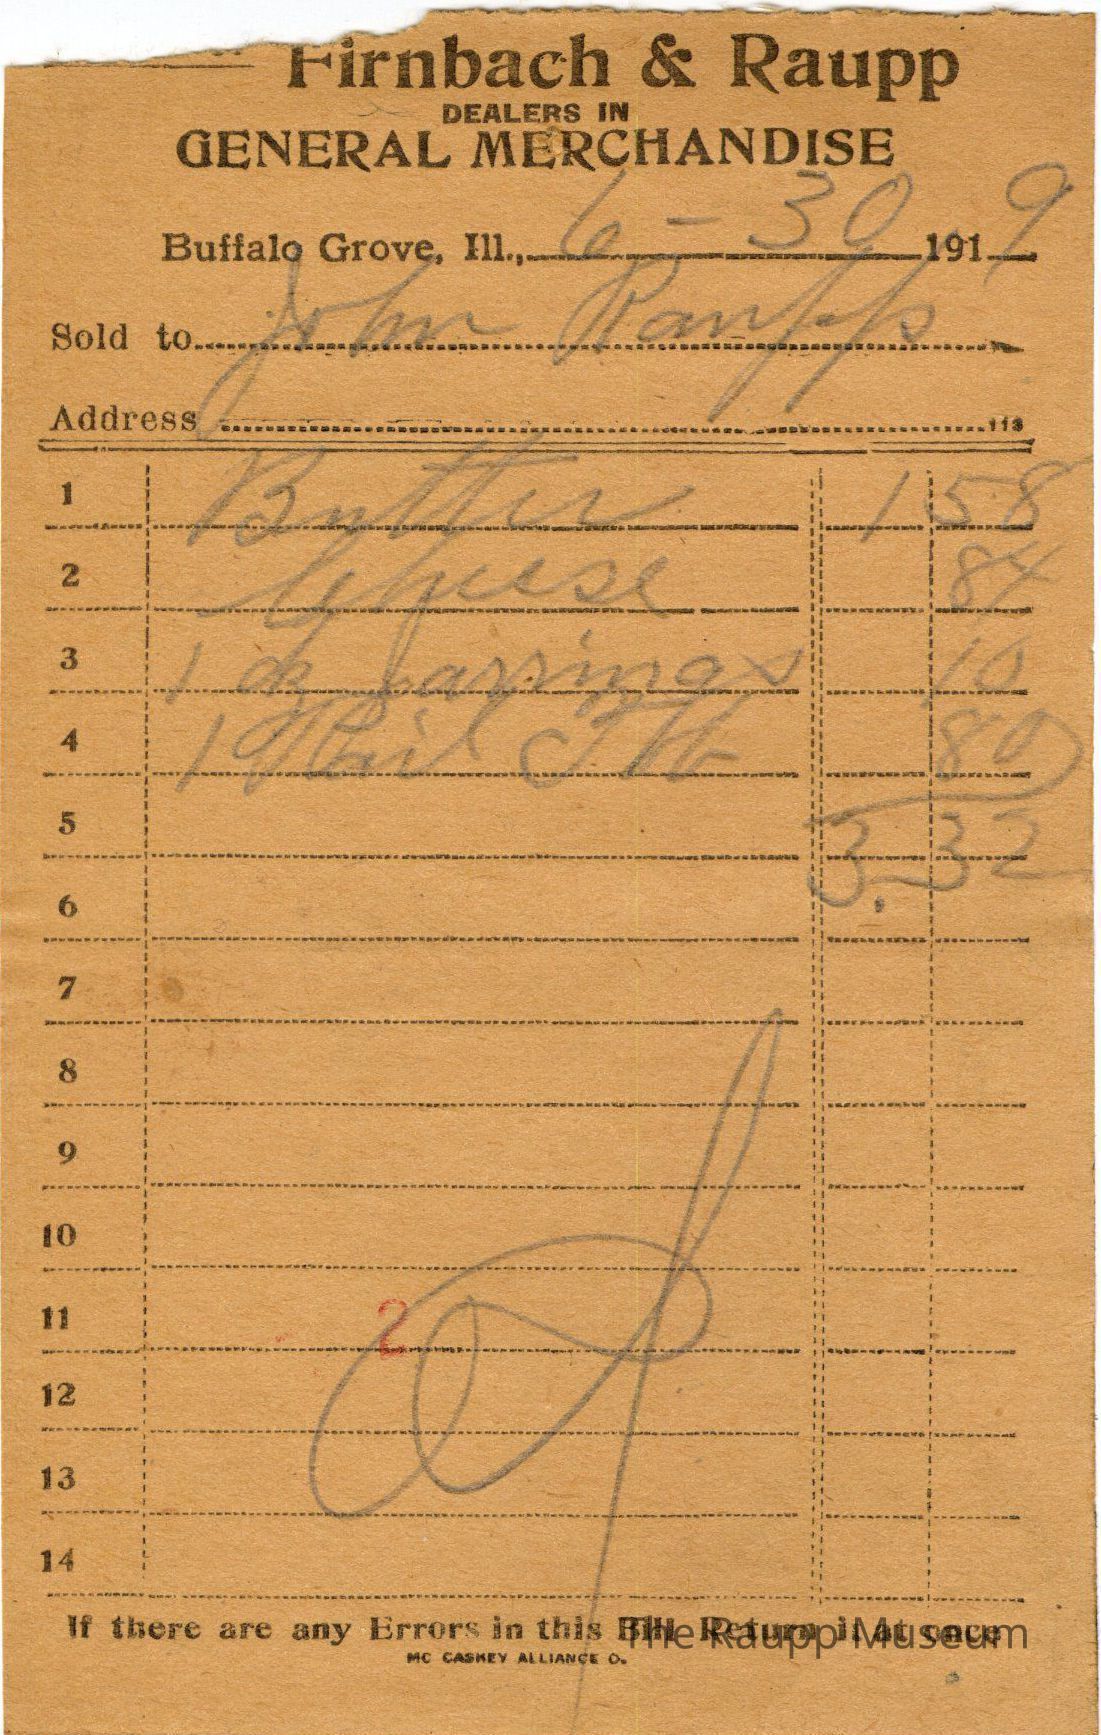 Firnbach & Raupp
DEALERS IN
GENERAL MERCHANDISE
Buffalo Grove, Ill., 6-30 1919
Sold to John Raupp
Address 113
1 Butter 1 58
2 Cheese 84
3 1 dz Jar rings 10
4 1 80
5 3.32
6
7
8
9
10
11 2
12
13
14
If there are any Errors in this Bill Return it at once
MC CASKEY ALLIANCE O.
The Raupp Museum